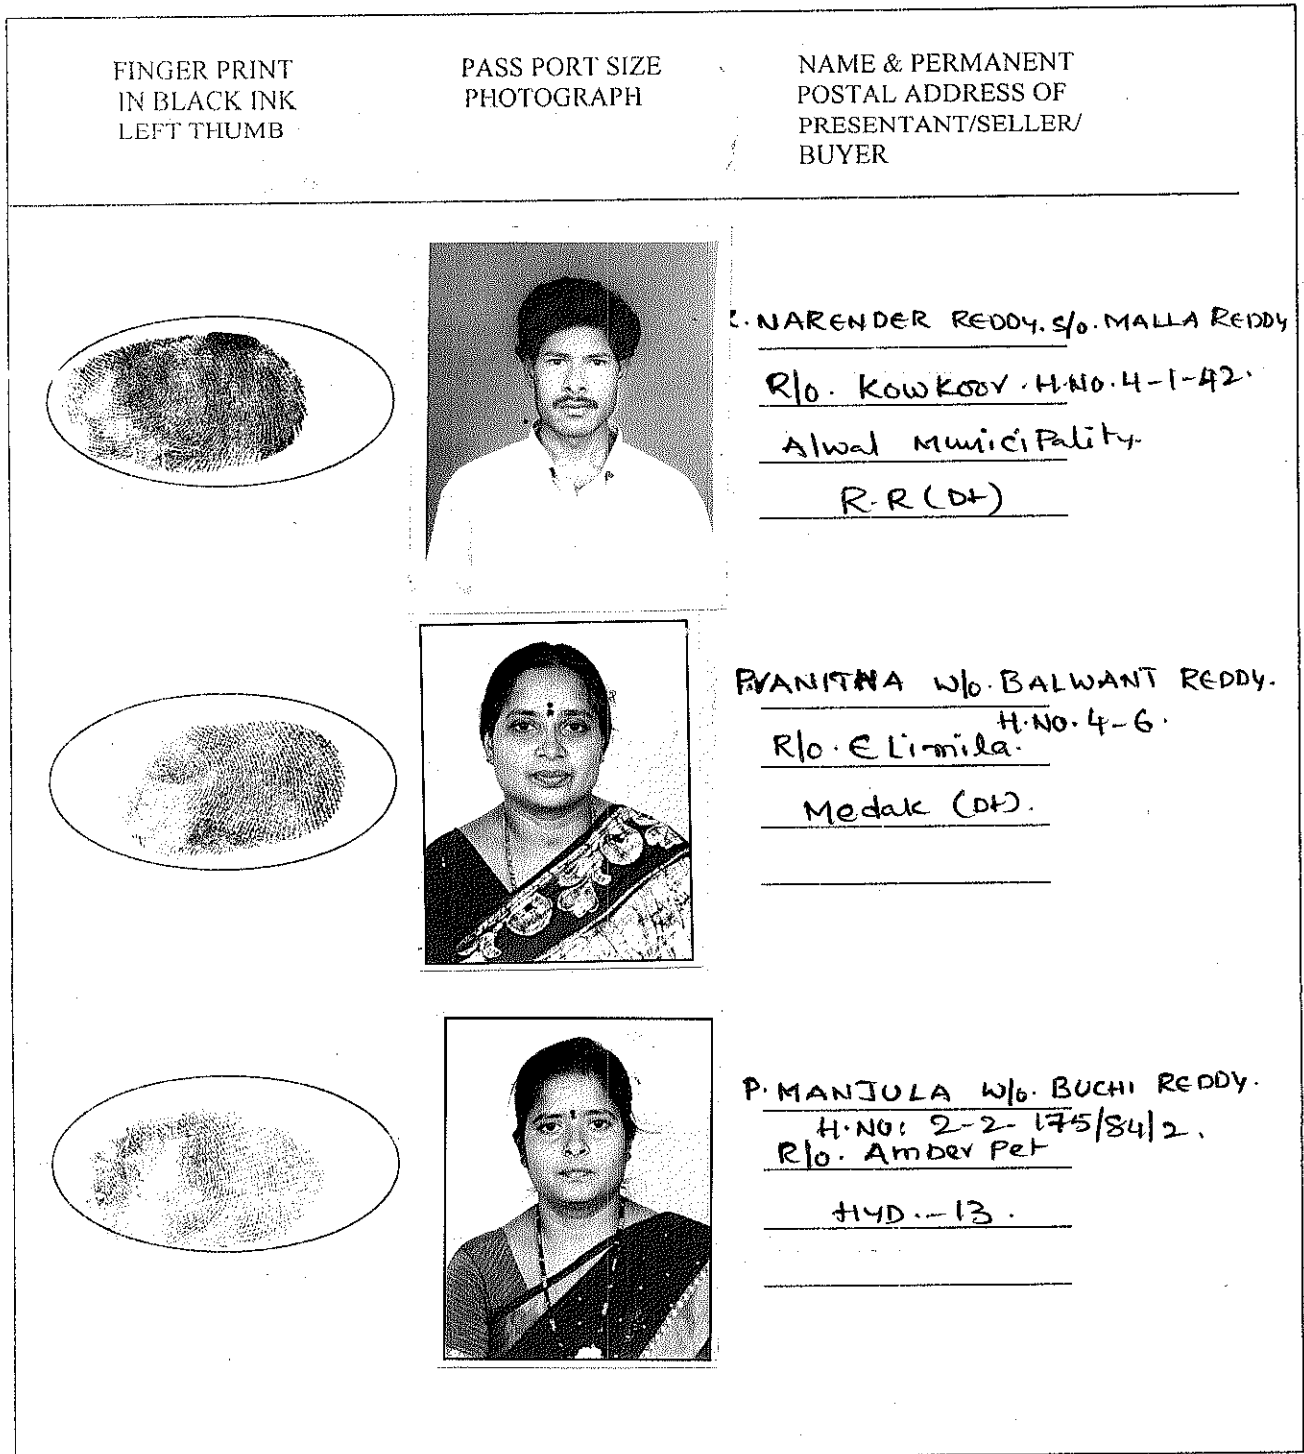 FINGER PRINT
IN BLACK INK
LEFT THUMB
PASS PORT SIZE
PHOTOGRAPH
NAME & PERMANENT
POSTAL ADDRESS OF
PRESENTANT/SELLER/
BUYER
NARENDER REDDY. S/o. MALLA REDDY
R/o. Kowkoor. H.No. 4-1-42.
Alwal Municipality.
R.R (Dt)
P.VANITHA W/o. BALWANT REDDY.
H.No. 4-6.
R/o. Elimila.
Medak (Dt).
P. MANJULA W/o. BUCHI REDDY.
H.No: 2-2-175/84/2.
R/o. Amber Pet
HYD.-13.